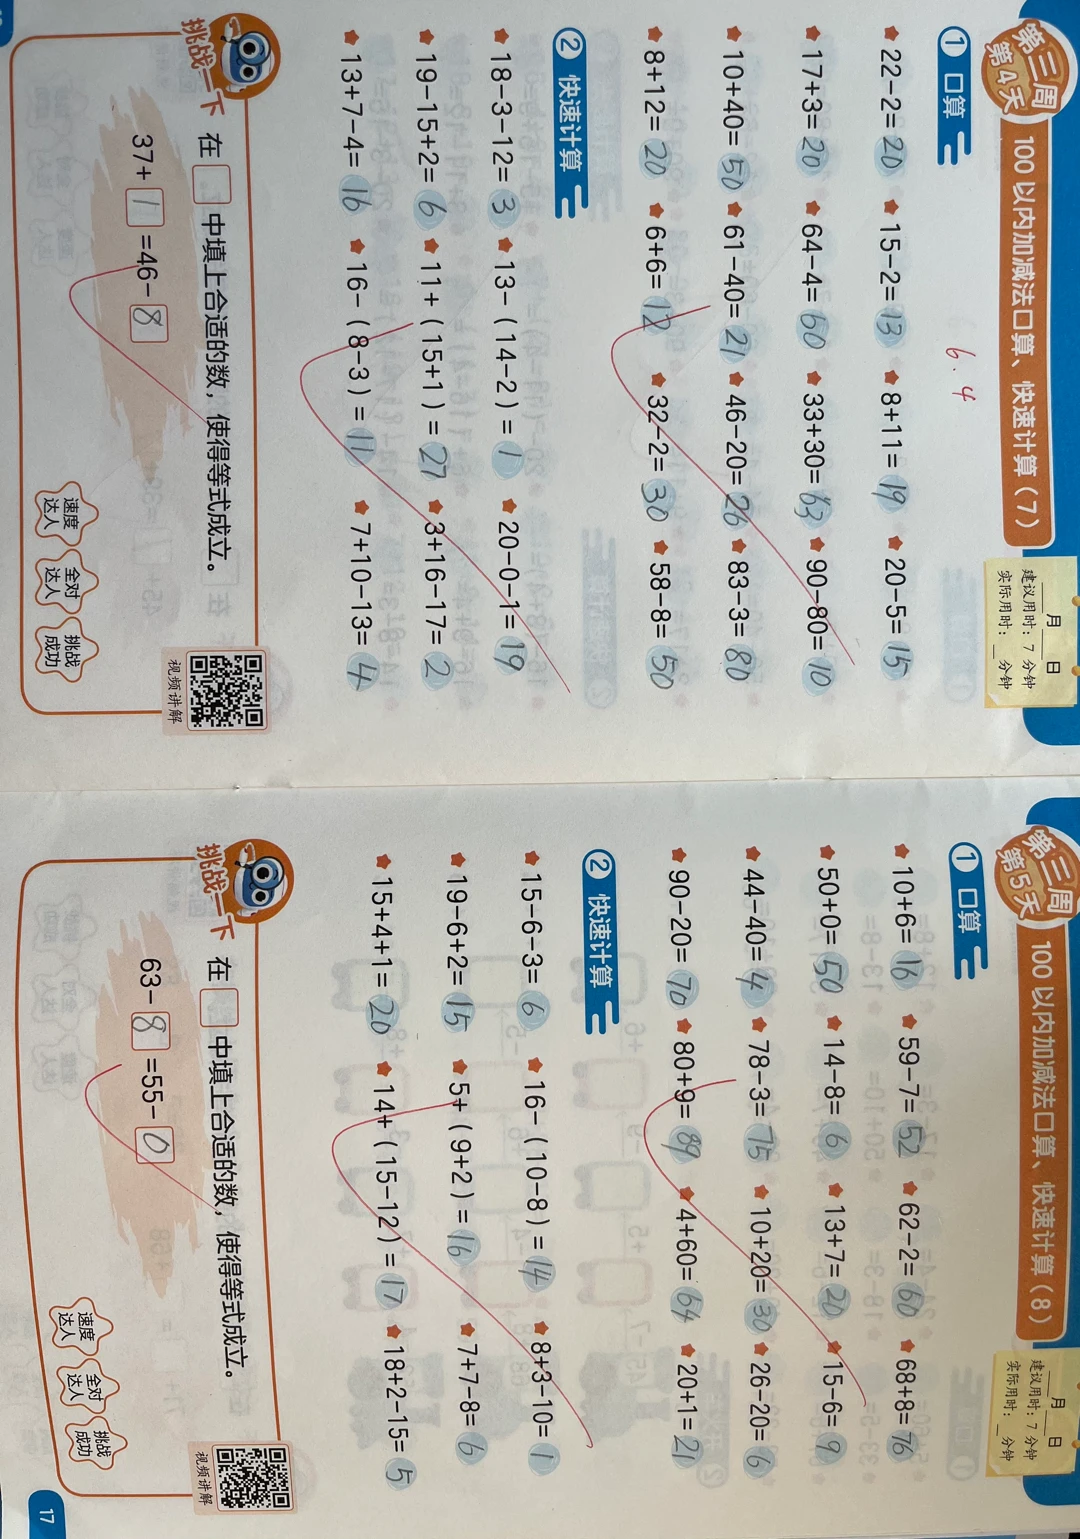 第三周
第4天
100以内加减法口算、快速计算(7)
___月___日
建议用时:7分钟
实际用时:_分钟
6.4
① 口算
22-2=20 15-2=13 8+11=19 20-5=15
17+3=20 64-4=60 33+30=63 90-80=10
10+40=50 61-40=21 46-20=26 83-3=80
8+12=20 6+6=12 32-2=30 58-8=50
② 快速计算
18-3-12=3 13-(14-2)=1 20-0-1=19
19-15+2=6 11+(15+1)=27 3+16-17=2
13+7-4=16 16-(8-3)=11 7+10-13=4
挑战一下 在□中填上合适的数,使得等式成立。
37+1=46-8
视频讲解
速度达人 全对达人 挑战成功
第三周
第5天
100以内加减法口算、快速计算(8)
___月___日
建议用时:7分钟
实际用时:_分钟
① 口算
10+6=16 59-7=52 62-2=60 68+8=76
50+0=50 14-8=6 13+7=20 15-6=9
44-40=4 78-3=75 10+20=30 26-20=6
90-20=70 80+9=89 4+60=64 20+1=21
② 快速计算
15-6-3=6 16-(10-8)=14 8+3-10=1
19-6+2=15 5+(9+2)=16 7+7-8=6
15+4+1=20 14+(15-12)=17 18+2-15=5
挑战一下 在□中填上合适的数,使得等式成立。
63-8=55-0
视频讲解
速度达人 全对达人 挑战成功
17